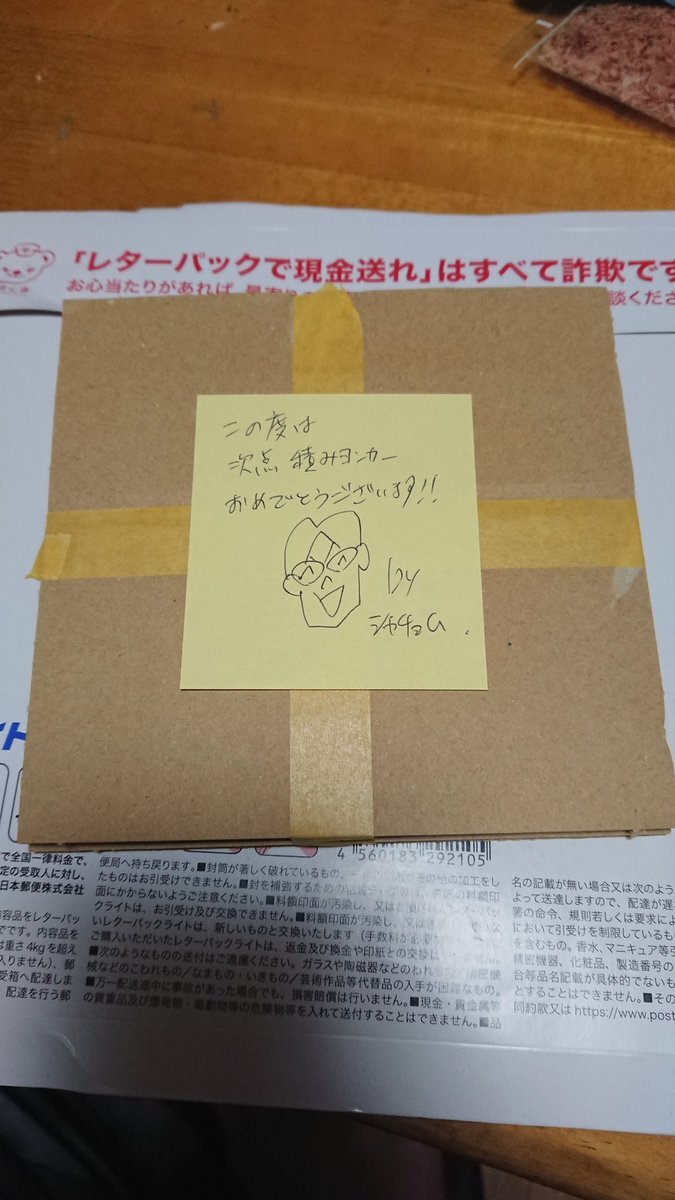 「レターパックで現金送れ」はすべて詐欺です
お心当たりがあれば
談くださ
この度は
次点 積みヨンカー
おめでとうございます!!
by
シャチョム.
イト
4 560183 292105
で全国一律料金で、
定の受取人に対し、
日本郵便株式会社
内容品をレターパッ
です。内容品を
は重さ4kgを超え
入りません)、郵
受箱へ配達しま
配達を行う郵
便局へ持ち戻ります。■封筒が著しく破れているもの、
その他の加工をし
たものはお引受けできません。■封を補強するための
面にかからないようご注意ください。■料額印面が汚染し、又は
クライトは、お引受け及び交換できません。■料額印面が汚染し、又は
いレターパックライトは、新しいものと交換いたします(手数料が必要
ご購入いただいたレターパックライトは、返金及び換金や印紙との交換は
■次のようなものの送付はご遠慮ください。ガラスや陶磁器などのわれ
精密機
械などのこわれもの/なまもの・いきもの/芸術作品等代替品の入手が困難なもの。
■万一配送途中に事故があった場合でも、損害賠償は行いません。■現金・貴金属等
の貴重品及び爆発物・毒劇物等の危険物等を入れて送付することはできません。■品
名の記載が無い場合又は次のよう
よって送達しますので、配達が遅
署の命令、規則若しくは要求によ
において引受けを制限しているもの
を含むもの。香水、マニキュア等引
精密機器、化粧品、製造番号の
合等品名記載が具体的でないも
とすることはできません。■その
同約款又は https://www.post